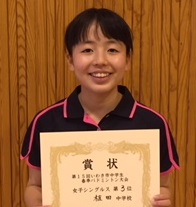 賞状
第15回いわき市中学生
春季バドミントン大会
女子シングルス 第3位
植田 中学校